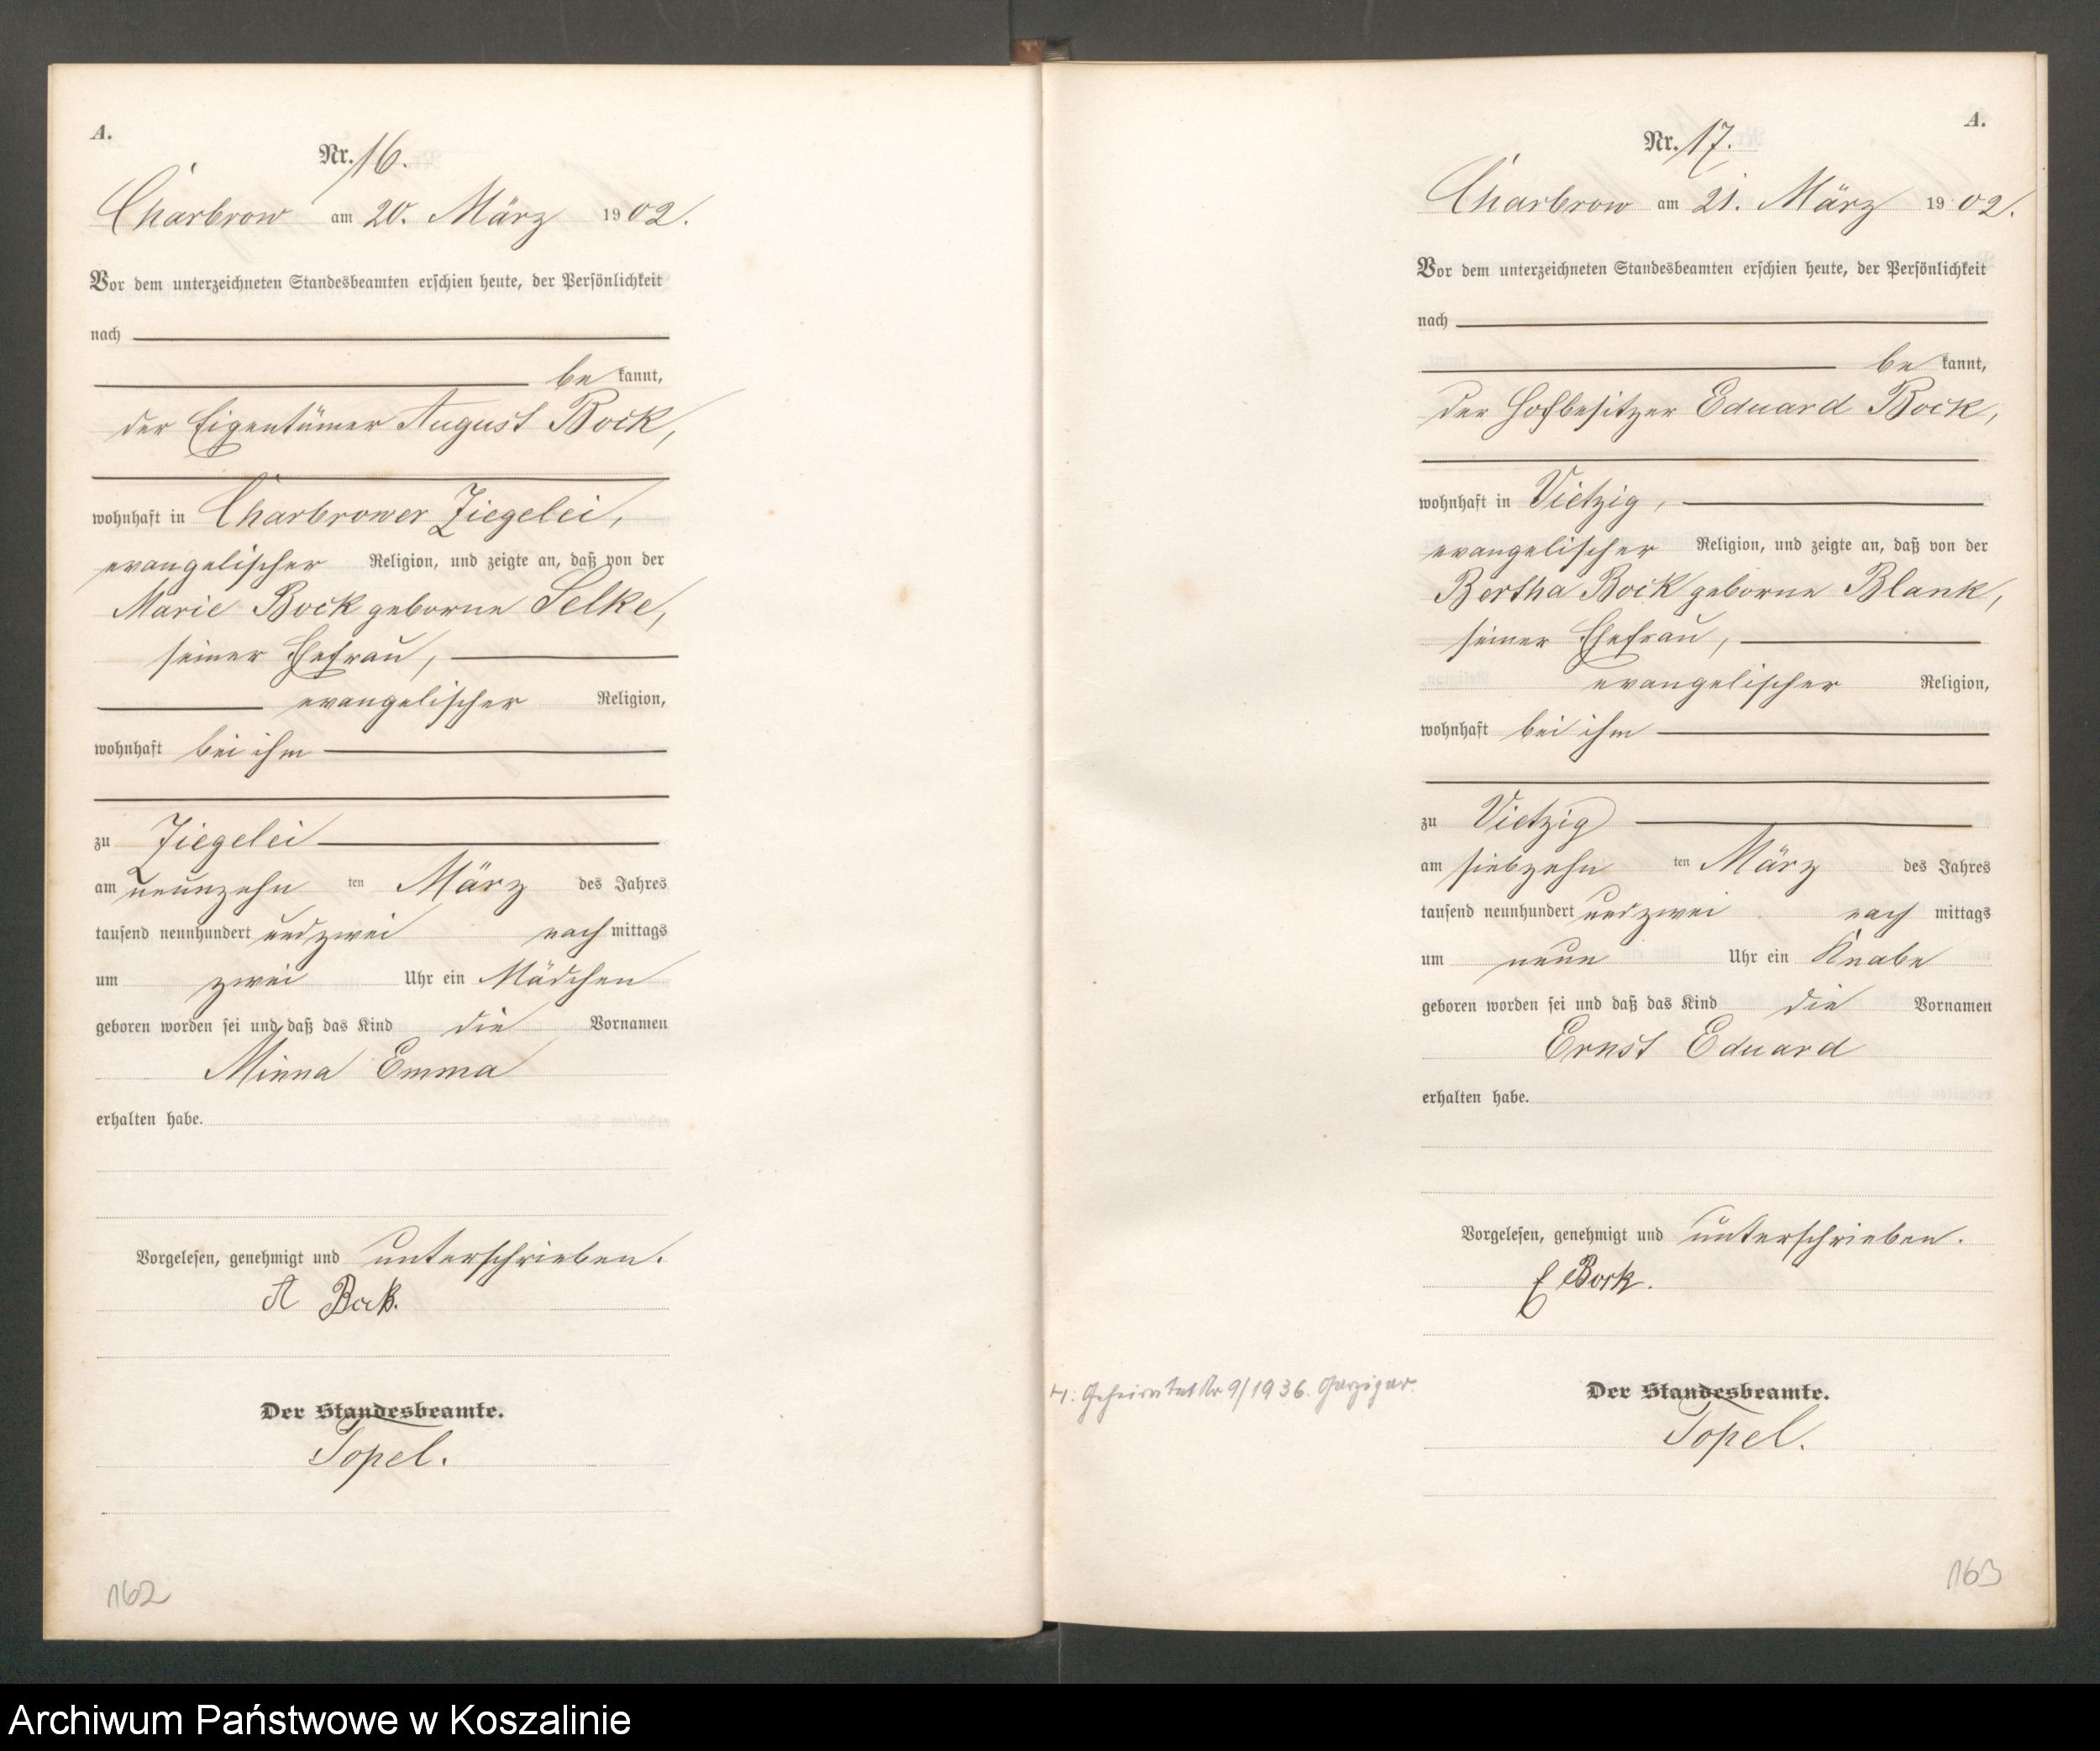 A.
Nr. 16.
Charbrow am 20. März 1902.
Vor dem unterzeichneten Standesbeamten erschien heute, der Persönlichkeit
nach
bekannt,
der Eigentümer August Bock,
wohnhaft in Charbrower Ziegelei,
evangelischer Religion, und zeigte an, daß von der
Marie Bock geborne Selke,
seiner Ehefrau,
evangelischer Religion,
wohnhaft bei ihm
zu Ziegelei
am neunzehn ten März des Jahres
tausend neunhundert und zwei nachmittags
um zwei Uhr ein Mädchen
geboren worden sei und daß das Kind die Vornamen
Minna Emma
erhalten habe.
Vorgelesen, genehmigt und unterschrieben.
A Bock.
Der Standesbeamte.
Topel.
162
A.
Nr. 17.
Charbrow am 21. März 1902.
Vor dem unterzeichneten Standesbeamten erschien heute, der Persönlichkeit
nach
bekannt,
der Hofbesitzer Eduard Bock,
wohnhaft in Vietzig,
evangelischer Religion, und zeigte an, daß von der
Bertha Bock geborne Blank,
seiner Ehefrau,
evangelischer Religion,
wohnhaft bei ihm
zu Vietzig
am siebzehn ten März des Jahres
tausend neunhundert und zwei nach mittags
um neun Uhr ein Knabe
geboren worden sei und daß das Kind die Vornamen
Ernst Eduard
erhalten habe.
Vorgelesen, genehmigt und unterschrieben.
E Bock.
Nr 9/1936. Garzigar.
Der Standesbeamte.
Topel.
163
Archiwum Państwowe w Koszalinie